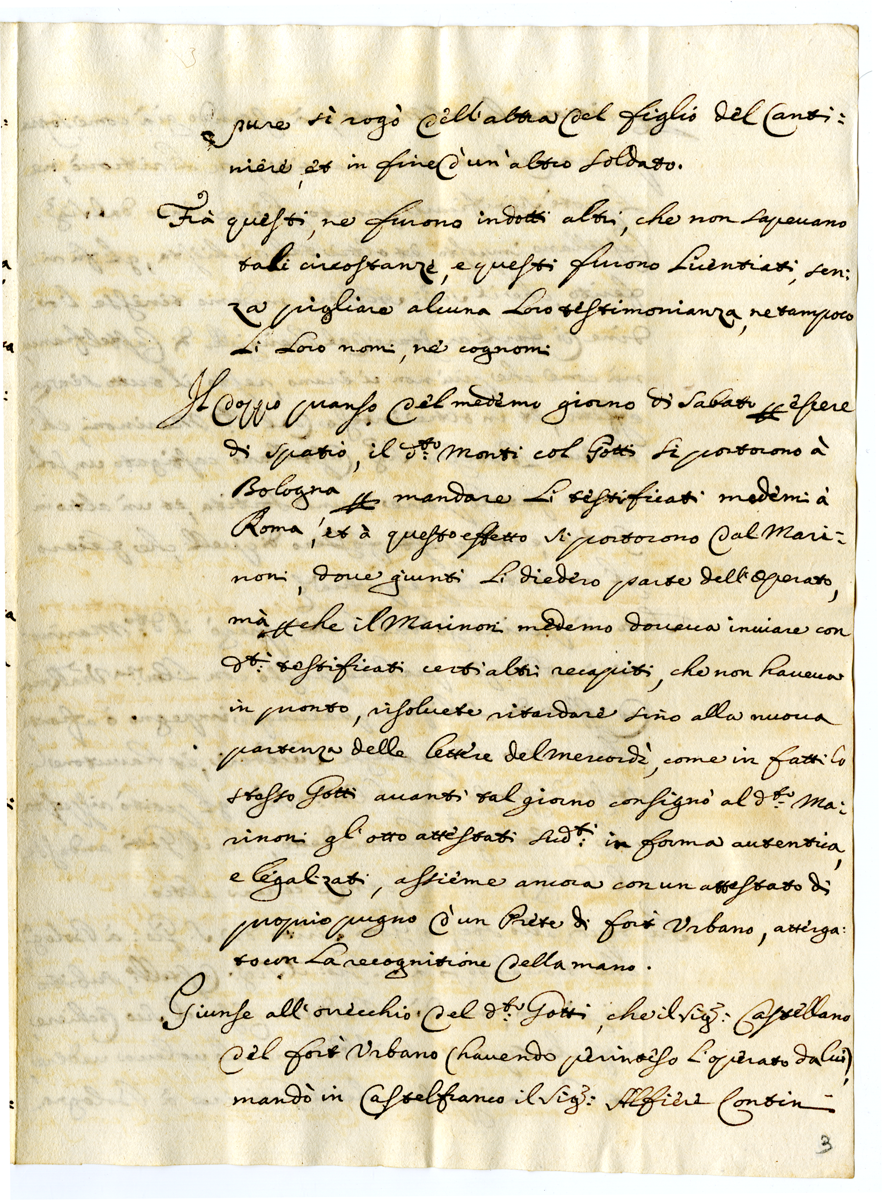 pure si rogò dell'altra del figlio del Canti:
niere, et in fine d'un'altro soldato.
Frà questi, ne furono indotti altri, che non sapevano
tali circostanze, e questi furono licentiati, sen:
za pigliare alcuna loro testimonianza, ne tampoco
li loro nomi, ne cognomi
Il doppo pranso del medemo giorno di Sabato essere
di spatio, il d.to Monti col Gotti si portorono à
Bologna mandare li testificati medemi à
Roma, et à questo effetto si portorono dal Mari-
noni, dove giunti li diedero parte dell'operato,
mà che il Marinoni medemo doveva inviare con
d.ti testificati certi altri recapiti, che non haveva
in pronto, risolvete ritardare sino alla nuova
partenza delle lettere del mercordì, come in fatti lo
stesso Gotti avanti tal giorno consignò al d.to Ma:
rinoni gl'otto attestati sud.ti in forma autentica,
e legalizati, assieme ancora con un attestato di
proprio pugno d'un Prete di fort Urbano, atterga:
to con la recognitione della mano.
Giunse all'orecchio del d.to Gotti, che il Sig.r Castellano
del fort Urbano (havendo perinteso l'operato da lui)
mandò in Castelfranco il Sig.r Alfiere Contin
3